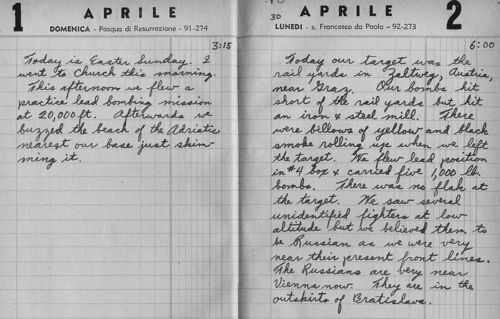 1 APRILE
DOMENICA - Pasqua di Resurrezione - 91-274
3:15
Today is Easter Sunday. I
went to Church this morning.
This afternoon we flew a
practice lead bombing mission
at 20,000 ft. Afterwards we
buzzed the beach of the Adriatic
nearest our base just skim-
ming it.
30
APRILE 2
LUNEDI - s. Francesco da Paola - 92-273
6:00
Today our target was the
rail yards in Zeltweg, Austria,
near Graz. Our bombs hit
short of the rail yards but hit
an iron & steel mill. There
were billows of yellow and black
smoke rolling up when we left
the target. We flew lead position
in #4 box & carried five 1,000 lb.
bombs. There was no flak at
the target. We saw several
unidentified fighters at low
altitude but we believed them to
be Russian as we were very
near their present front lines.
The Russians are very near
Vienna now. They are in the
outskirts of Bratislava.